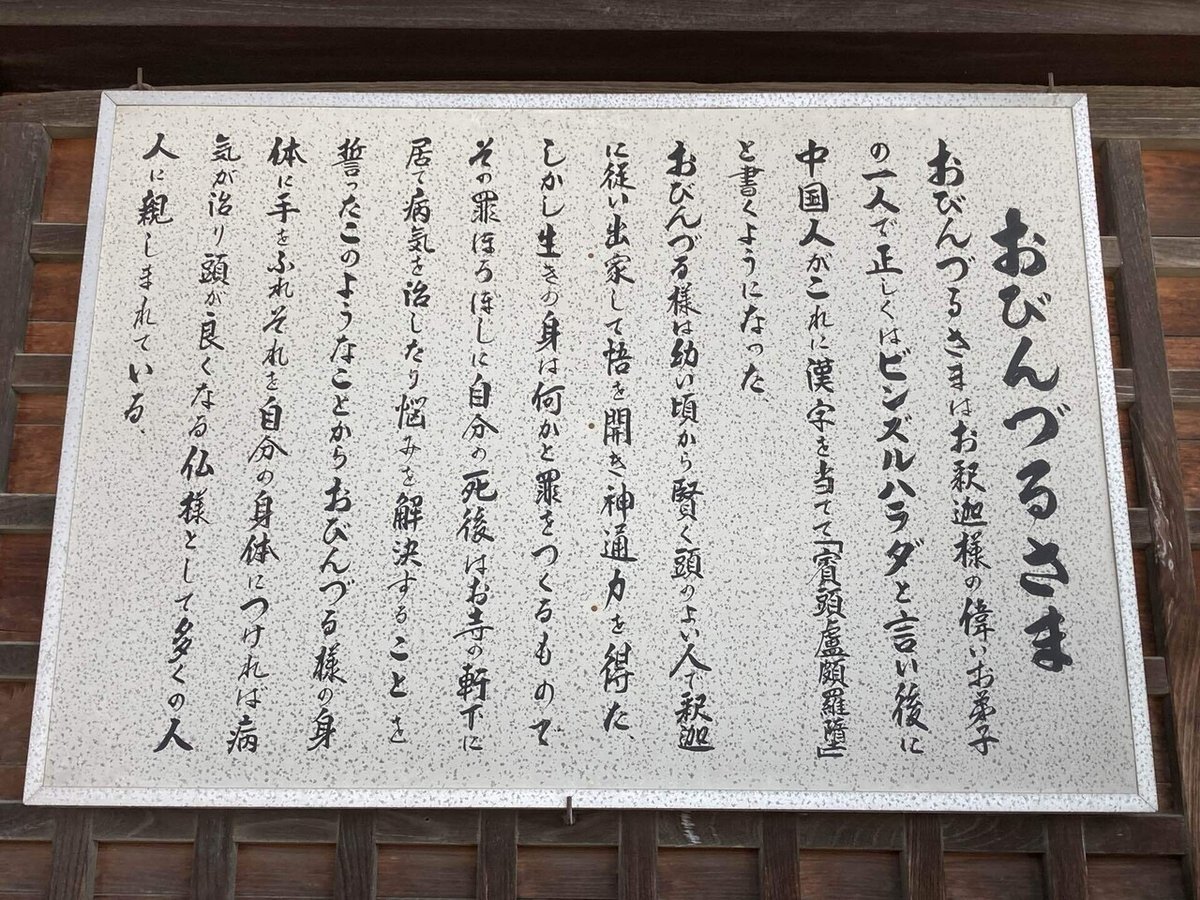 おびんづるさま
おびんづるさまはお釈迦様の偉いお弟子
の一人で正しくはビンズルハラダと言い後に
中国人がこれに漢字を当てて「賓頭盧頗羅墮」
と書くようになった
おびんづる様は幼い頃から賢く頭のよい人で釈迦
に従い出家して悟を開き神通力を得た、
しかし生きの身は何かと罪をつくるもので
その罪ほろぼしに自分の死後はお寺の軒下に
居て病気を治したり悩みを解決することを
誓ったこのようなことからおびんづる様の身
体に手をふれそれを自分の身体につければ病
気が治り頭が良くなる仏様として多くの人
人に親しまれている、